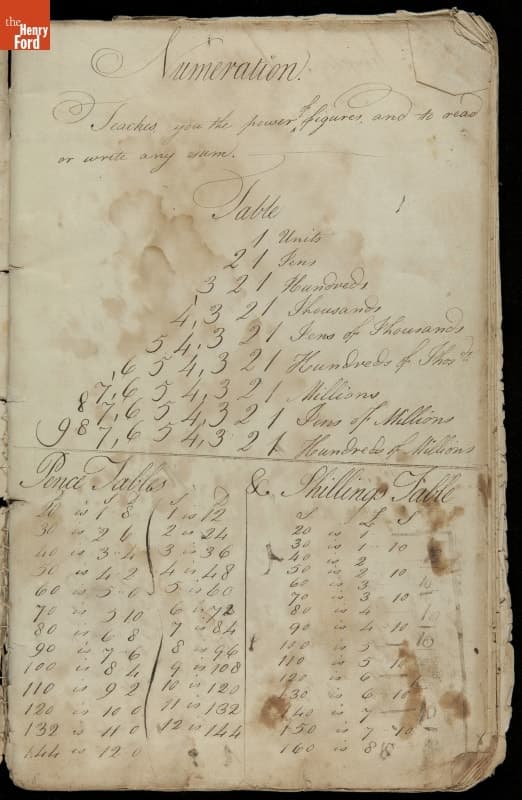 the Henry Ford
Numeration.
Teaches you the power of figures, and to read
or write any sum.
Table
1 Units
2 1 Tens
3 2 1 Hundreds
4, 3 2 1 Thousands
5 4, 3 2 1 Tens of Thousands
6 5 4, 3 2 1 Hundreds of Thosds
7, 6 5 4, 3 2 1 Millions
8 7, 6 5 4, 3 2 1 Tens of Millions
9 8 7, 6 5 4, 3 2 1 Hundreds of Millions
Pence Tables
S D
20 is 1 8
30 is 2 6
40 is 3 4
50 is 4 2
60 is 5 0
70 is 5 10
80 is 6 8
90 is 7 6
100 is 8 4
110 is 9 2
120 is 10 0
132 is 11 0
144 is 12 0
S D
1 is 12
2 is 24
3 is 36
4 is 48
5 is 60
6 is 72
7 is 84
8 is 96
9 is 108
10 is 120
11 is 132
12 is 144
& Shillings Table
S £ S
20 is 1
30 is 1 10
40 is 2
50 is 2 10
60 is 3
70 is 3 10
80 is 4
90 is 4 10
100 is 5
110 is 5 10
120 is 6
130 is 6 10
140 is 7
150 is 7 10
160 is 8